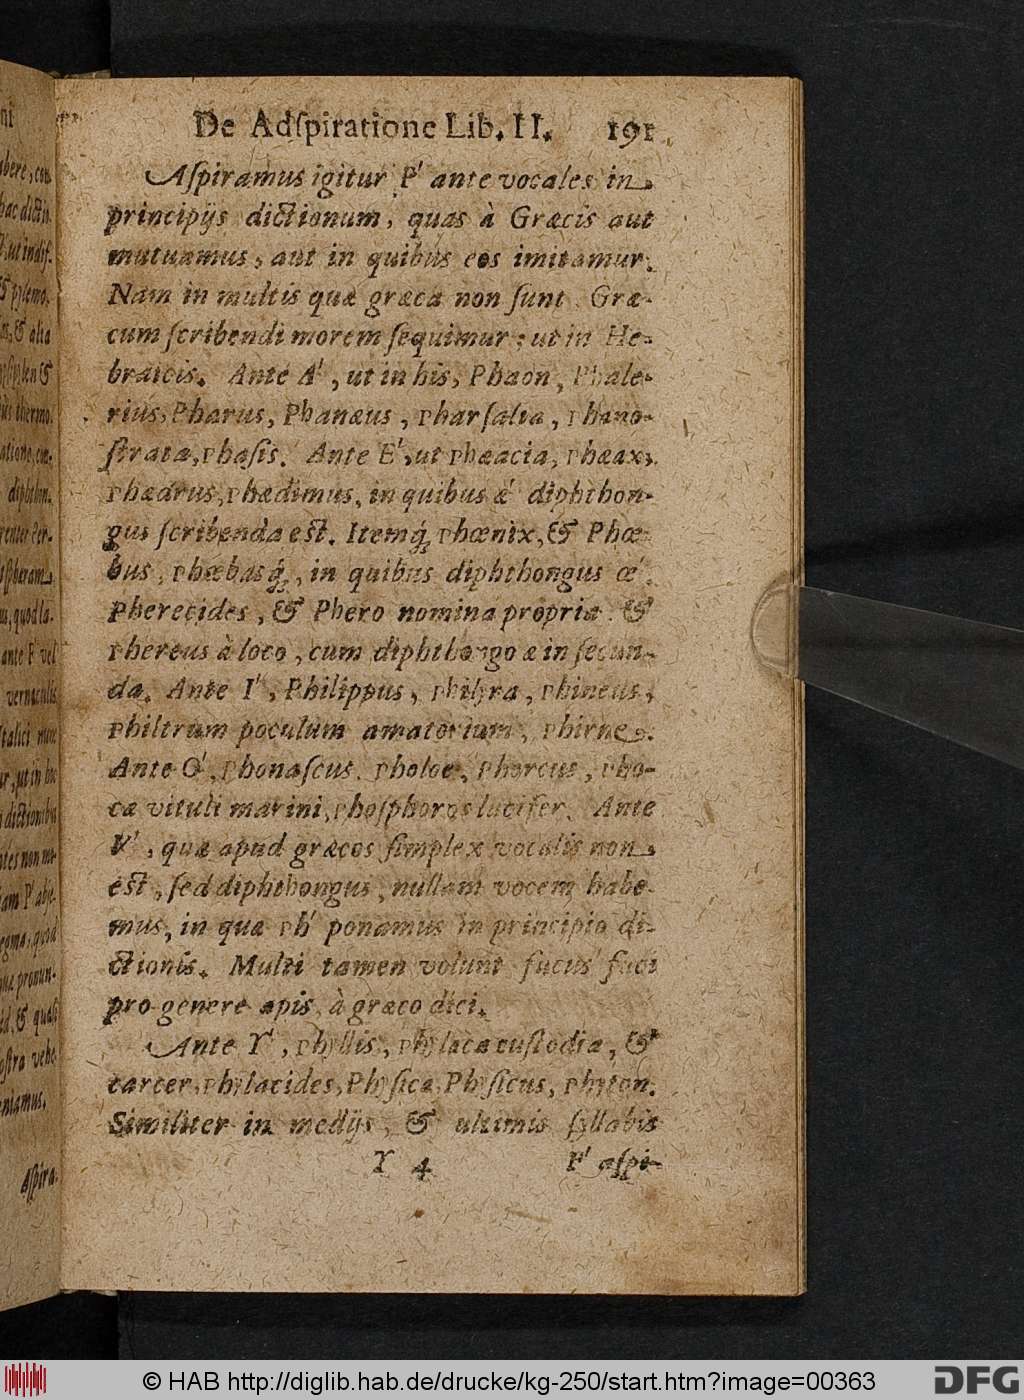 De Adſpiratione Lib. II. 191
Aſpiramus igitur P' ante vocales in
principijs dictionum, quas à Græcis aut
mutuamus, aut in quibus eos imitamur.
Nam in multis quæ græca non ſunt Græ-
cum ſcribendi morem ſequimur: ut in He-
braicis. Ante A', ut in his, Phaon, Phale-
rius, Pharus, Phanæus, Pharſalia, Phano-
ſtrata, Phaſis. Ante E', ut Phæacia, Phæax,
Phædrus, Phædimus, in quibus æ' diphthon-
gus ſcribenda est. Itemq́; Phœnix, & Phœ-
bus, Phœbasq́;, in quibus diphthongus œ'.
Pherecides, & Phero nomina propria. &
Phereus à loco, cum diphthongo æ in ſecun-
da. Ante I', Philippus, Philyra, Phineus,
Philtrum poculum amatorium, Phirne.
Ante O', Phonaſcus, Pholoe, Phorcus, Pho-
cæ vituli marini, Phoſphoros lucifer. Ante
V', quæ apud græcos ſimplex vocalis non
est, ſed diphthongus, nullam vocem habe-
mus, in qua Ph' ponamus in principio di-
ctionis. Multi tamen volunt fucus fuci
pro genere apis, à græco dici.
Ante Y', Phyllis, Phylaca cuſtodia, &
carcer, Phylacides, Phyſica, Phyſicus, Phyton.
Similiter in medijs, & ultimis ſyllabis
Y 4 P' aſpi-
abere, con
hac dictio
ut indiſ-
& alta
thermo.
diphthon.
us, quod la-
ante P vel
vernaculis
Italici nunc
ur, ut in hoc
dictionibus
egma, quod
& quaſi
oſtra vehe
eniamus.
Aſpira-
© HAB http://diglib.hab.de/drucke/kg-250/start.htm?image=00363
DFG